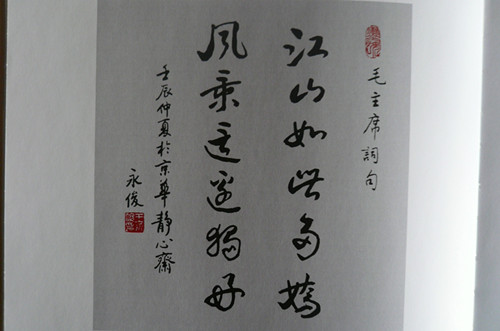 毛主席詞句
江山如此多嬌
風景這邊獨好
壬辰仲夏於京華靜心齋
永俊